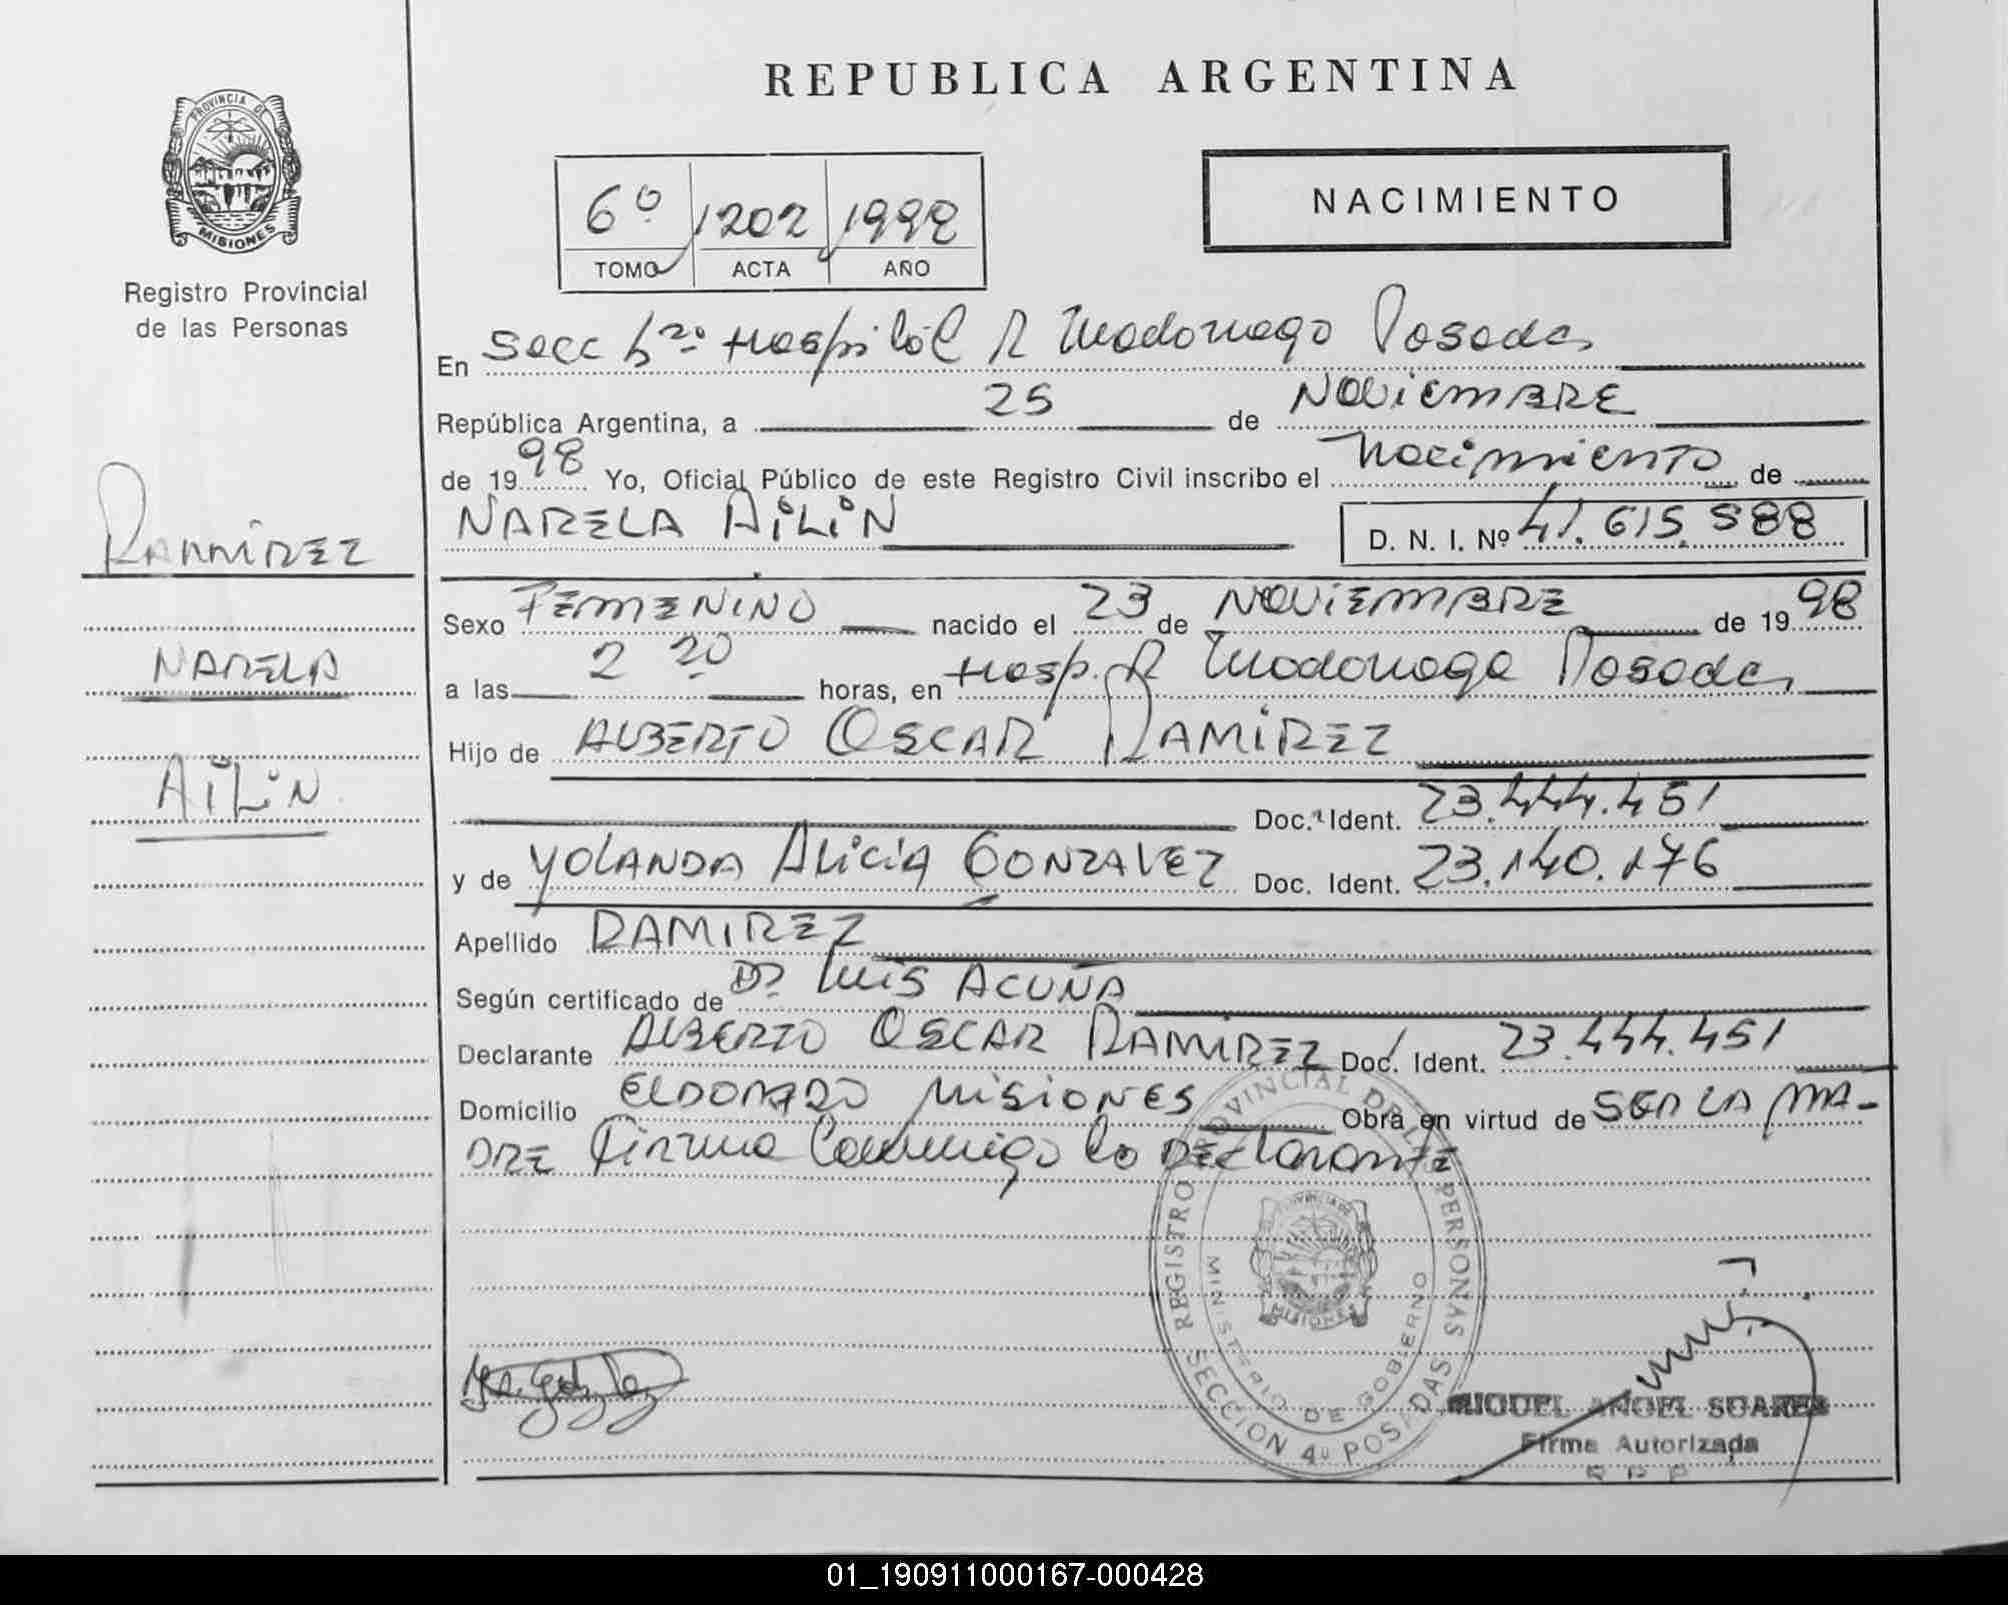 PROVINCIA DE
MISIONES
Registro Provincial
de las Personas
RAMIREZ
NARELA
AILIN
REPUBLICA ARGENTINA
NACIMIENTO
6º 1202 1998
TOMO ACTA AÑO
En Secc Hospital R Madariaga Posadas
República Argentina, a 25 de NOVIEMBRE
de 1998 Yo, Oficial Público de este Registro Civil inscribo el Nacimiento de
NARELA AILIN D. N. I. Nº 41.615.588
Sexo FEMENINO nacido el 23 de NOVIEMBRE de 1998
a las 2 20 horas, en Hosp. R Madariaga Posadas
Hijo de ALBERTO OSCAR RAMIREZ
Doc. Ident. 23.444.451
y de YOLANDA ALICIA GONZALEZ Doc. Ident. 23.140.176
Apellido RAMIREZ
Según certificado de Dr. Luis ACUÑA
Declarante ALBERTO OSCAR RAMIREZ / Doc. Ident. 23.444.451
Domicilio ELDORADO MISIONES Obra en virtud de SER LA MA-
DRE Firma Conmigo La DEClarante
REGISTRO PROVINCIAL DE LAS PERSONAS
MINISTERIO DE GOBIERNO
MISIONES
SECCION 4º POSADAS
MIGUEL ANGEL SUAREZ
Firma Autorizada
01_190911000167-000428